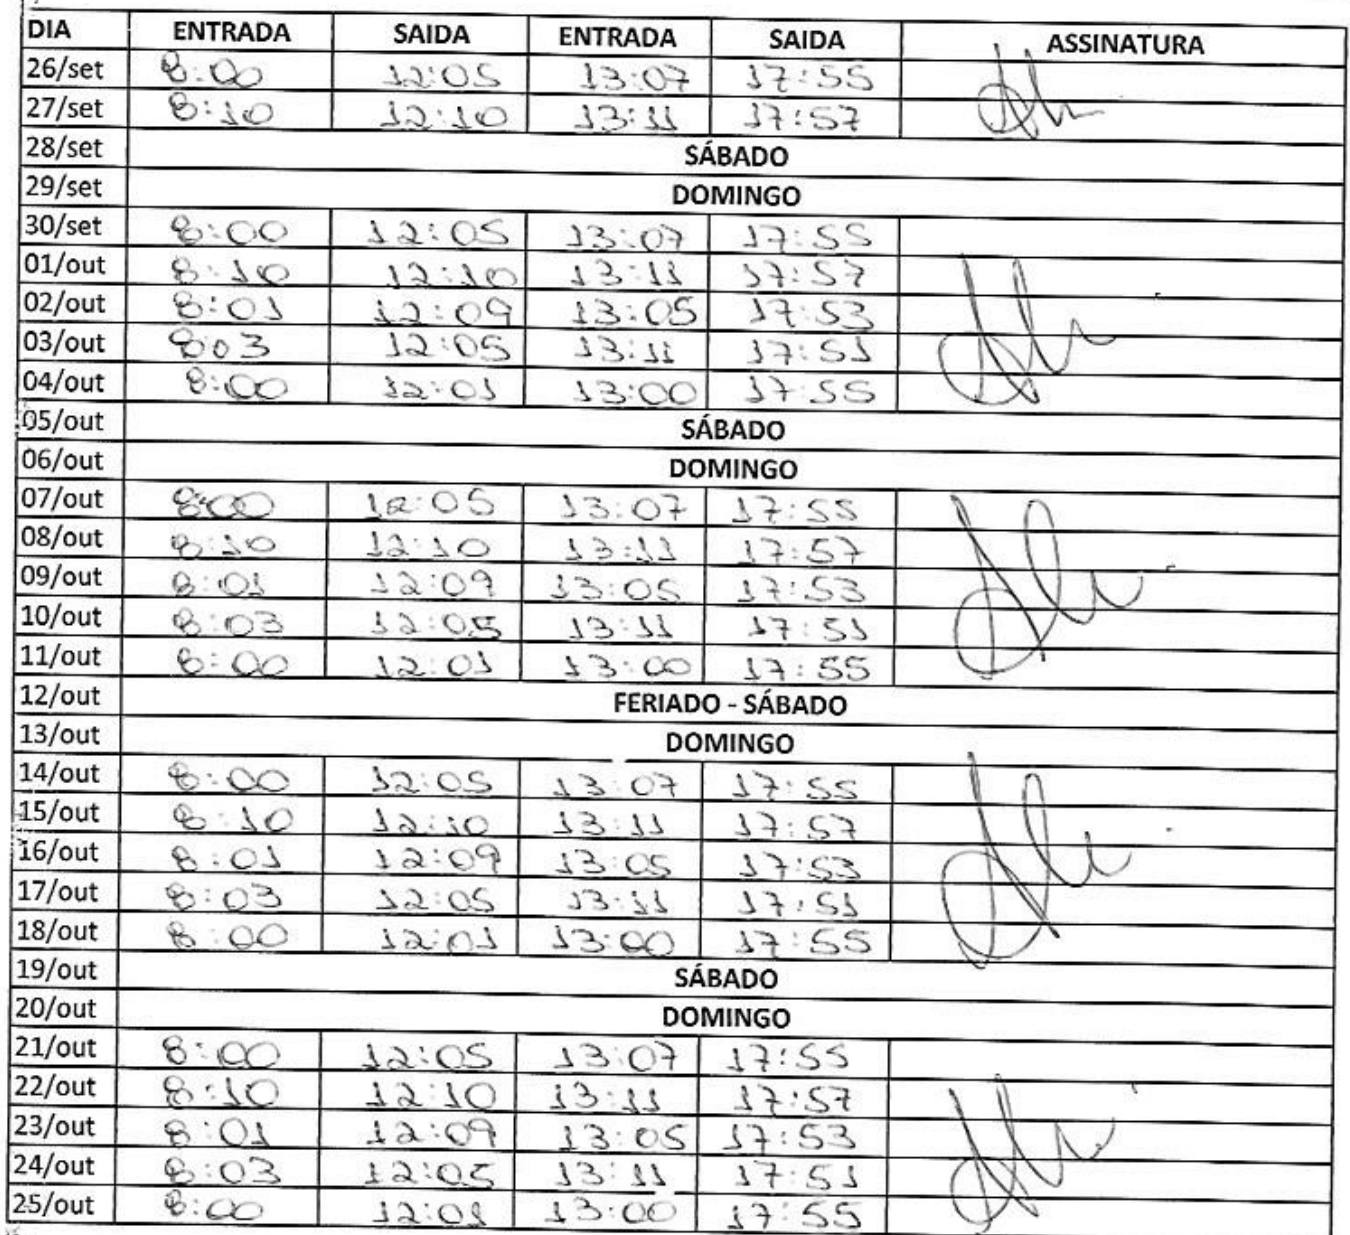 DIA ENTRADA SAIDA ENTRADA SAIDA ASSINATURA
26/set 8:00 12:05 13:07 17:55
27/set 8:10 12:10 13:11 17:57
28/set SÁBADO
29/set DOMINGO
30/set 8:00 12:05 13:07 17:55
01/out 8:10 12:10 13:11 17:57
02/out 8:01 12:09 13:05 17:53
03/out 8:03 12:05 13:11 17:51
04/out 8:00 12:01 13:00 17:55
05/out SÁBADO
06/out DOMINGO
07/out 8:00 12:05 13:07 17:55
08/out 8:10 12:10 13:11 17:57
09/out 8:01 12:09 13:05 17:53
10/out 8:03 12:05 13:11 17:51
11/out 8:00 12:01 13:00 17:55
12/out FERIADO - SÁBADO
13/out DOMINGO
14/out 8:00 12:05 13:07 17:55
15/out 8:10 12:10 13:11 17:57
16/out 8:01 12:09 13:05 17:53
17/out 8:03 12:05 13:11 17:51
18/out 8:00 12:01 13:00 17:55
19/out SÁBADO
20/out DOMINGO
21/out 8:00 12:05 13:07 17:55
22/out 8:10 12:10 13:11 17:57
23/out 8:01 12:09 13:05 17:53
24/out 8:03 12:05 13:11 17:51
25/out 8:00 12:01 13:00 17:55